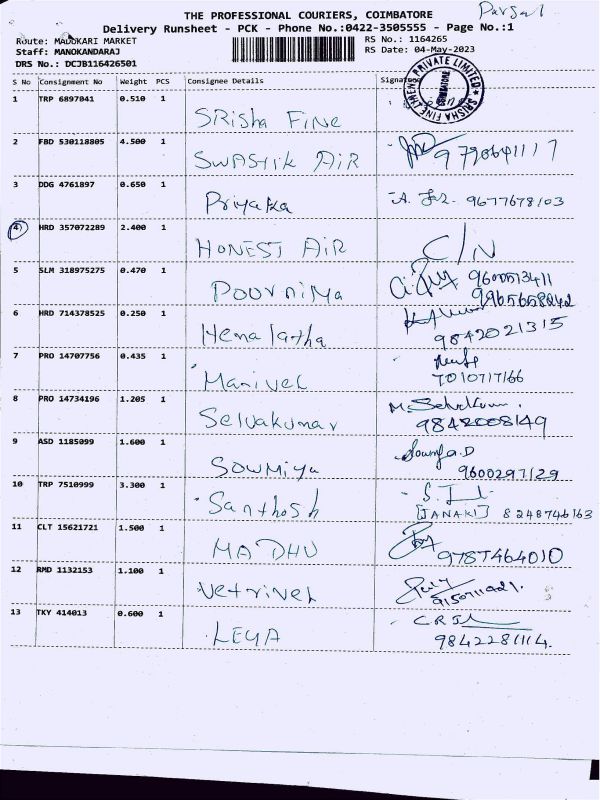 THE PROFESSIONAL COURIERS, COIMBATORE Parsal
Delivery Runsheet - PCK - Phone No.:0422-3505555 - Page No.:1
Route: MADUKARI MARKET RS No.: 1164265
Staff: MANOKANDARAJ RS Date: 04-May-2023
DRS No.: DCJB116426501
S No Consignment No Weight PCS Consignee Details Signature
1 TRP 6897041 0.510 1 SRisha FiNe
PRIVATE LIMITED SRISHA FINE COIMBATORE
2 FBD 530118805 4.500 1 SWAStik AiR
3 DDG 4761897 0.650 1 Priyaka 9677678103
4 HRD 357072289 2.400 1 HONEST AiR C/N
5 SLM 318975275 0.470 1 POOrniMa 9600513411
9965658242
6 HRD 714378525 0.250 1 Hemalatha 9842021315
7 PRO 14707756 0.435 1 Manivel 7010717166
8 PRO 14734196 1.205 1 Selvakumar M. Selvakumar.
9842008149
9 ASD 1185099 1.600 1 SOWMiya Sowmya.D
9600297129
10 TRP 7510999 3.300 1 Santhosh
[JANAKI] 8248746163
11 CLT 15621721 1.500 1 MADHU 9787464010
12 RMD 1132153 1.100 1 Vetrivel
13 TKY 414013 0.600 1 LEYA
9842281114.